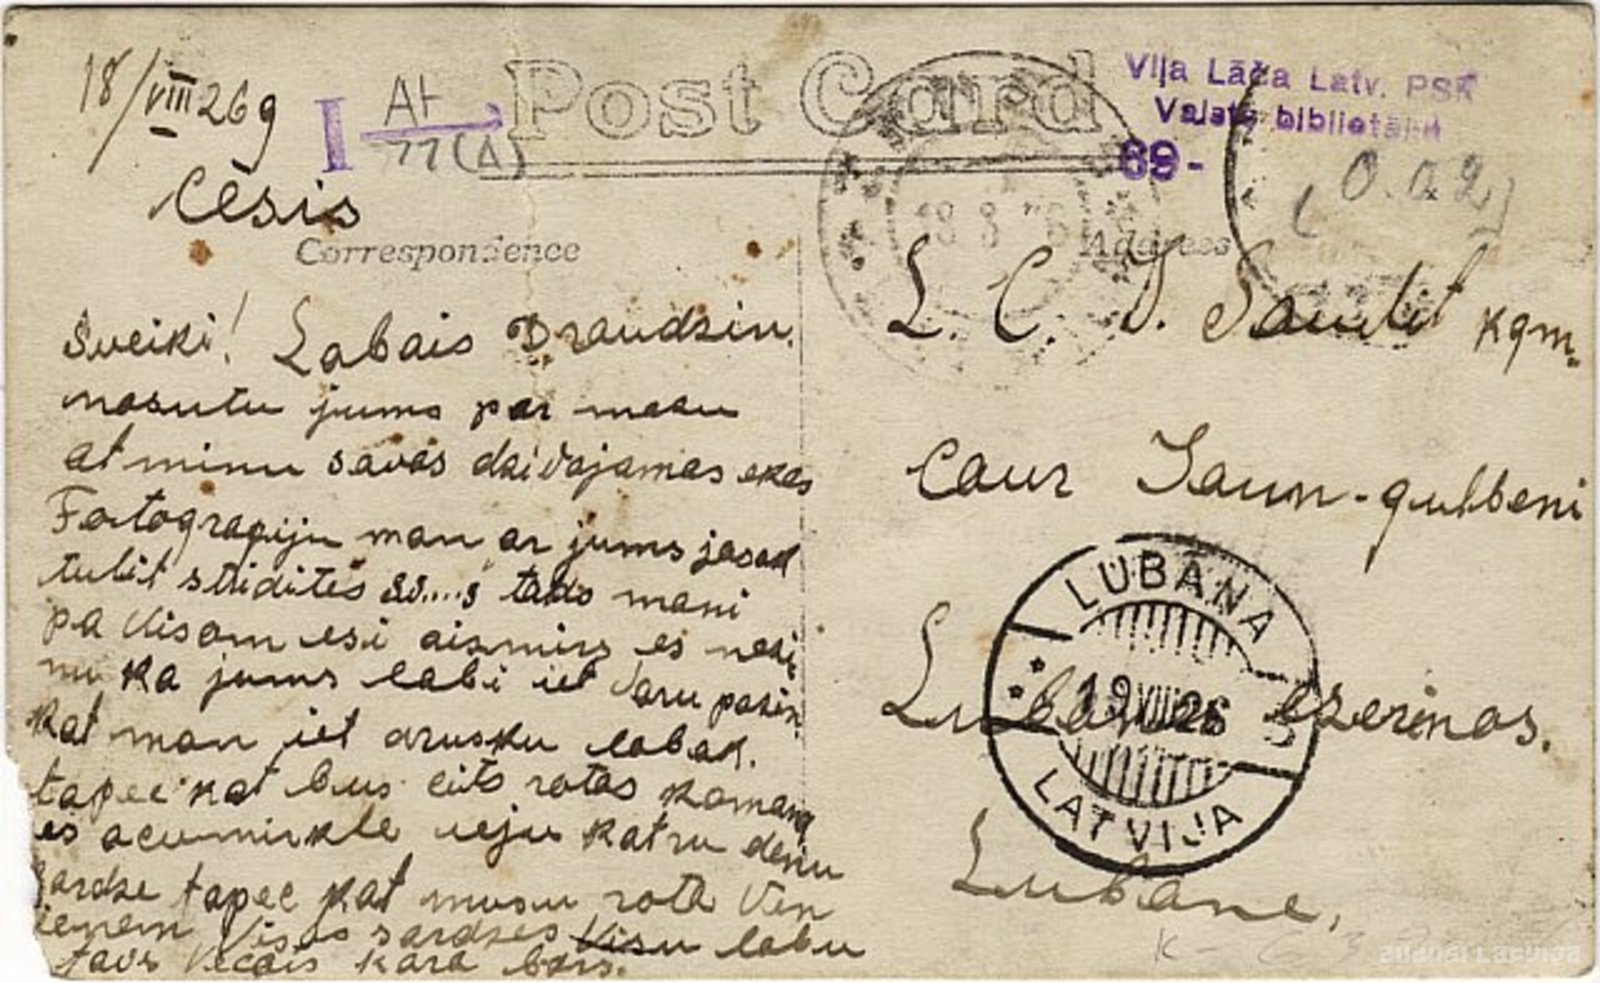 18/VIII 26 g
Cēsis
I At
77(A)
Post Card
Viļa Lāča Latv. PSR
Valsts bibliotēka
69-
18 8 26
Correspondence
Address
Sveiki! Labais Draudzin.
nosutu jums par masu
at minu savas dzivojamas ekas
Fotografiju man ar jums jasak
tulit striditēs ss....s tads mani
pa visam esi aismirs es nesi
nu ka jums labi iet varu pasin
kat man iet arusku labak.
tapec kat bus cits rotas komand
es acumirkle ieju katru denu
Sardze tapec kat musu rota Ven
ienem Visas sardzes Visu labu
tavs Vecais kara bars.
L. C. D. Saulit kgm.
Caur Jaun-gulbeni
Lubanas ezermos.
Lubanē,
LUBANA
19 VIII 26
LATVIJA
zudusi Latvija